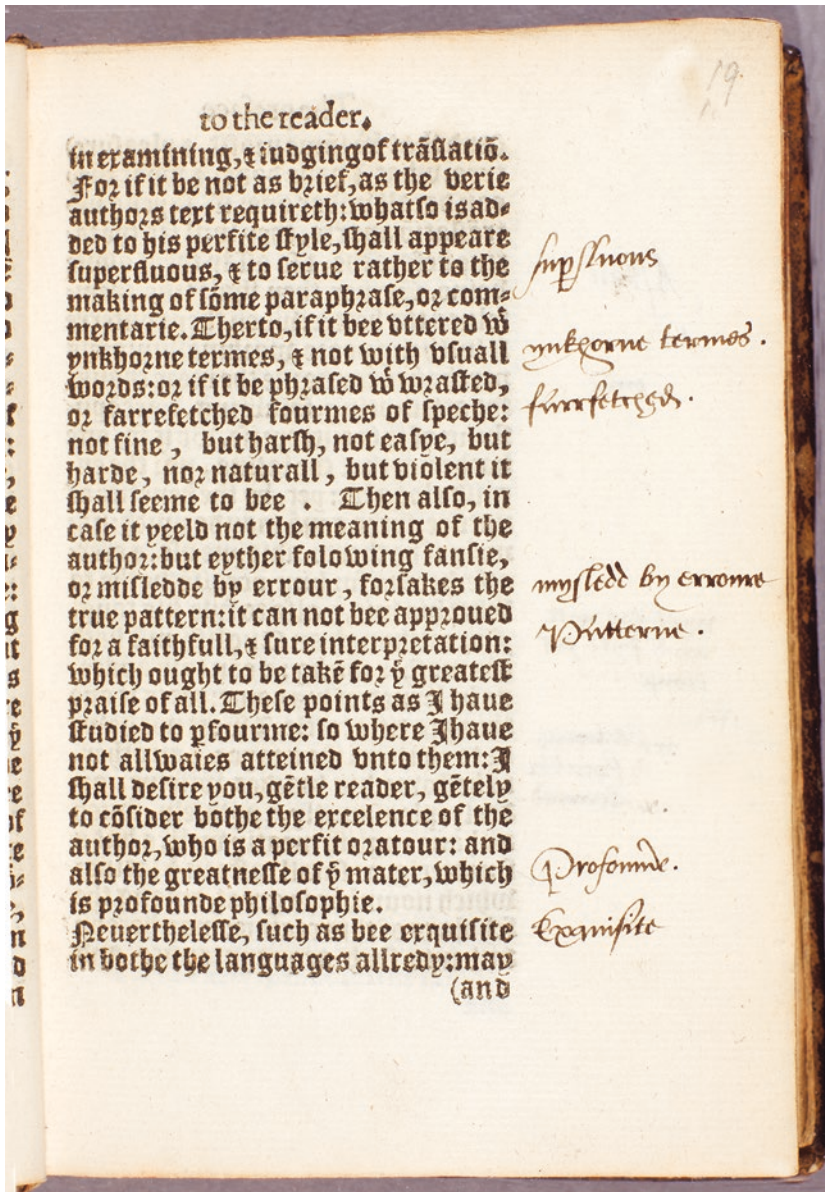 19.
to the reader.
in examining, & iudging of trãslatiõ.
For if it be not as brief, as the verie
authors text requireth: whatso is ad-
ded to his perfite style, shall appeare
superfluous, & to serue rather to the
making of sõme paraphrase, or com-
mentarie. Therto, if it bee vttered wͭ
ynkhorne termes, & not with vsuall
words: or if it be phrased wͭ wrasted,
or farrefetched fourmes of speche:
not fine, but harsh, not easye, but
harde, nor naturall, but violent it
shall seeme to bee. Then also, in
case it yeeld not the meaning of the
author: but eyther folowing fansie,
or misledde by errour, forsakes the
true pattern: it can not bee approued
for a faithfull, & sure interpretation:
which ought to be takẽ for yͤ greatest
praise of all. These points as I haue
studied to ꝑfourme: so where I haue
not allwaies atteined vnto them: I
shall desire you, gẽtle reader, gẽtely
to cõsider bothe the excelence of the
author, who is a perfit oratour: and
also the greatnesse of yͤ mater, which
is profounde philosophie.
Neuerthelesse, such as bee exquisite
in bothe the languages allredy: may
(and
suꝑfluous
ynkhorne termes.
farrfetched.
mysledd by erroure
Patterne.
Profounde.
Exquisite